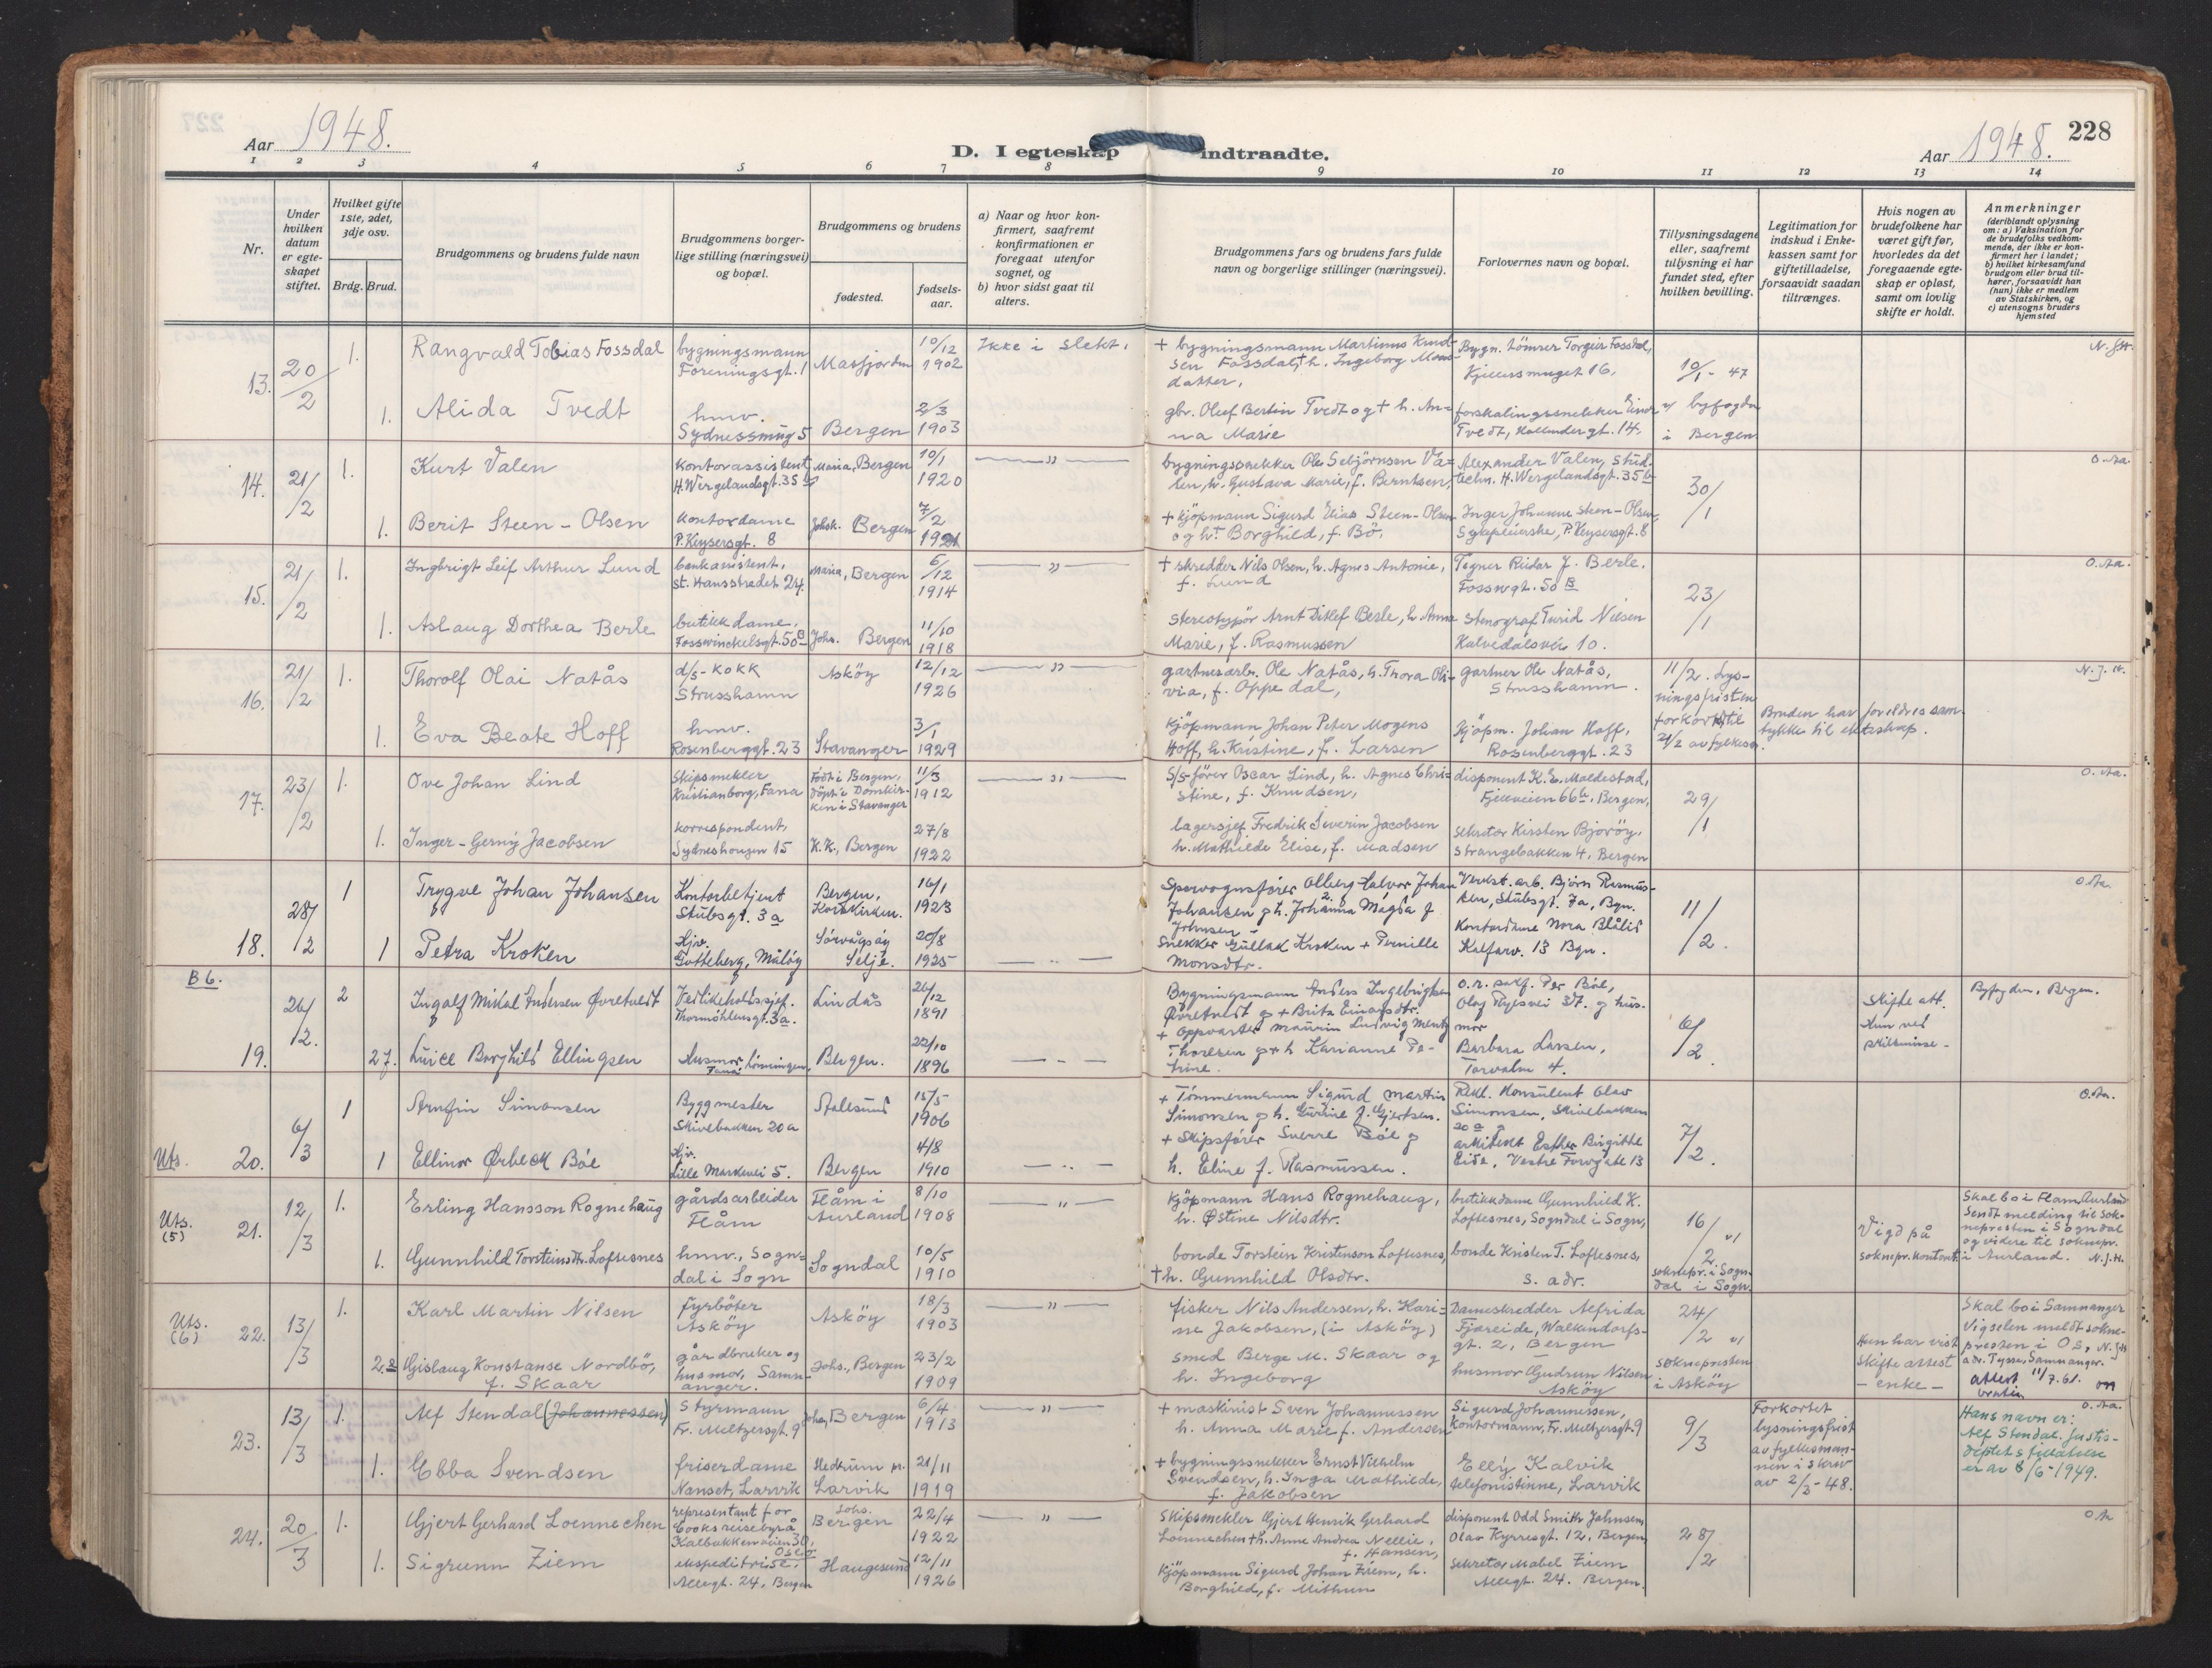 Aar 1948.
D. I egteskap indtraadte.
Aar 1948.
228
1 2 3 4 5 6 7 8 9 10 11 12 13 14
Nr.
Under hvilken datum er egteskapet stiftet.
Hvilket gifte 1ste, 2det, 3dje osv.
Brdg. Brud.
Brudgommens og brudens fulde navn
Brudgommens borgerlige stilling (næringsvei) og bopæl.
Brudgommens og brudens
fødested.
fødselsaar.
a) Naar og hvor konfirmert, saafremt konfirmationen er foregaat utenfor sognet, og
b) hvor sidst gaat til alters.
Brudgommens fars og brudens fars fulde navn og borgerlige stillinger (næringsvei).
Forlovernes navn og bopæl.
Tillysningsdagene eller, saafremt tillysning ei har fundet sted, efter hvilken bevilling.
Legitimation for indskud i Enkekassen samt for giftetilladelse, forsaavidt saadan tiltrænges.
Hvis nogen av brudefolkene har været gift før, hvorledes da det foregaaende egteskap er opløst, samt om lovlig skifte er holdt.
Anmerkninger
(deriblandt oplysning om: a) Vaksination for de brudefolks vedkommende, der ikke er konfirmert her i landet; b) hvilket kirkesamfund brudgom eller brud tilhører, forsaavidt han (hun) ikke er medlem av Statskirken, og c) utensogns bruders hjemsted
13. 20/2 1. Rangvald Tobias Fossdal bygningsmann Foreningsgt. 1 Masfjorden 10/12 1902 Ikke i slekt. + bygningsmann Martinus Knudsen Fossdal, + h. Ingeborg Monsdatter, Bygn. tömrer Torgeir Fossdal, Kjellersmuget 16. 10/1 - 47
1. Alida Tvedt hmv. Sydnessmug 5 Bergen 2/3 1903 gbr. Oluf Bertin Tvedt og + h. Anna Marie forskalingssnekker Einar Tvedt, Hollendergt. 14. v/ byfogden i Bergen
14. 21/2 1. Kurt Valen Kontorassistent H. Wergelandsgt. 35 b Maria, Bergen 10/1 1920 — " — bygningssnekker Ole Sebjörnsen Valen, h. Gustava Marie, f. Berntsen, Alexander Valen, stud. techn. H. Wergelandsgt. 35 b 30/1 O. Aa.
1. Berit Steen-Olsen Kontordame P. Keysersgt. 8 Johsk. Bergen 7/2 1921 + kjöpmann Sigurd Elias Steen-Olsen og h. + Borghild, f. Bö. Inger Johanne Steen-Olsen, Sykepleierske, P. Keysersgt. 8
15. 21/2 1. Ingbrigt Leif Arthur Lund bankassistent, St. Hansstredet 24. Maria, Bergen 6/12 1914 — " — + skredder Nils Olsen, h. Agnes Antonie, f. Lund Tegner Reidar J. Berle. Fosswgt. 50 B 23/1 O. Aa.
1. Aslaug Dorthea Berle butikkdame, Fosswinckelsgt. 50 B Joh. Bergen 11/10 1918 Stereotypör Arnt Ditlef Berle, h. Anna Marie, f. Rasmussen stenograf Turid Nilsen Kalvedalsvei 10.
16. 21/2 1. Thorolf Olai Natås d/s-Kokk Strusshamn Asköy 12/12 1926 — " — gartnerarb. Ole Natås, h. Thora Olivia, f. Oppedal, gartner Ole Natås, Strusshamn. 11/2. Lysningsfristen forkortet til 21/2 av fylkesm. N. J. H.
1. Eva Beate Hoff hmv. Rosenberggt. 23 Stavanger 3/1 1929 Kjöpmann Johan Peter Mogens Hoff, h. Kristine, f. Larsen Kjöpm. Johan Hoff, Rosenberggt. 23 Bruden har foreldres samtykke til ekteskap.
17. 23/2 1. Ove Johan Lind Skipsmekler Kristianborg, Fana Födt i Bergen, döpt i Domkirken i Stavanger 11/3 1912 — " — S/s-förer Oscar Lind, h. Agnes Christine, f. Knudsen, disponent K. E. Moldestad, Fjellveien 66 b, Bergen, 29/1 O. Aa.
1. Inger-Gerny Jacobsen korrespondent, Sydneshaugen 15 K.K., Bergen 27/8 1922 lagersjef Fredrik Severin Jacobsen h. Mathilde Elise, f. Madsen sekretær Kirsten Bjoröy, Strangebakken 4, Bergen
18. 28/2 1 Trygve Johan Johansen Kontorbetjent Stubsgt. 3a Bergen, Korskirken. 16/1 1923 Sporvognsfører Olberg Halvor Johan Johansen og h. Johanna Magda f. Johnsen Verkst. arb. Bjørn Rasmussen, Stubsgt. 7a, Bgn. 11/2. O. Aa.
1 Petra Kroken Hjv. Gotteberg, Måløy Sørvågsøy Selje. 20/8 1925 Snekker Gullak Kroken + Pernille Monsdtr. Kontordame Nora Blålid Kalfarv. 13 Bgn.
B 6. 19. 26/2. 2 Ingolf Mikal Andersen Øvretvedt Vedlikeholdssjef. Thormøhlensgt. 3a. Lindås 26/12 1891 Bygningsmann Anders Ingebrigtsen Øvretvedt og + Brita Einarsdtr. O.r. sakf. Per Bøe, Olaf Ryesvei 37. og husmor 6/2. Skifte att. Hun ved skilsmisse - Byfogden, Bergen.
27. Luice Borghild Ellingsen Husmor, Lønningen, Fana Bergen. 22/10 1896 — " — + Oppvarter Maurin Ludvig Mentz Thoresen og + h Karianne Petrine. Barbara Larsen, Torvalm 4.
Uts. 20. 6/3 1 Arnfin Simonsen Byggmester Skivebakken 20a Ålesund 15/5 1906 + Tømmermann Sigurd Martin Simonsen og h. Gurine f. Gjertsen. Rekl. Konsulent Olav Simonsen, Skivebakken 20a og 7/2. O. Aa.
1 Ellinor Ørbeck Bøe Hjv. Lille Markevei 5. Bergen 4/8 1910 — " — + Skipsfører Sverre Bøe og h. Eline f. Rasmussen. arkitekt Esther Birgitte Eide, Vestre Torvgate 13
Uts. (5) 21. 12/3 1. Erling Hansson Rognehaug gårdsarbeider Flåm Flåm i Aurland 8/10 1908 — " — Kjöpmann Hans Rognehaug, h. Østine Nilsdtr. butikkdame Gunnhild K. Loftesnes, Sogndal i Sogn, 16/2 v/ soknepr. i Sogndal i Sogn. Vigd på soknepr. kontoret Skal bo i Flåm, Aurland Sendt melding til soknepresten i Sogndal og videre til soknepr. i Aurland. N. J. H.
1. Gunnhild Torsteinsdtr. Loftesnes hmv., Sogndal i Sogn Sogndal 10/5 1910 bonde Torstein Kristenson Loftesnes, + h. Gunnhild Olsdtr. bonde Kristen T. Loftesnes, s. adr.
Uts. (6) 22. 13/3 1. Karl Martin Nilsen fyrböter Asköy Asköy 18/3 1903 — " — fisker Nils Andersen, h. Karine Jakobsen, (i Asköy) Dameskredder Alfrida Fjæreide, Walkendorfsgt. 2, Bergen 24/2 v/ soknepresten i Asköy Hun har vist skifte attest - enke - Skal bo i Samnanger Vigselen meldt soknepresten i Os, N. J. H. adr. Tysse, Samnanger. attest 11/7.61.
2. Gislaug Konstanse Nordbö, f. Skaar gårdbruker og husmor, Samnanger. Johs., Bergen 23/2 1909 smed Berge M. Skaar og h. Ingeborg husmor Gudrun Nilsen Asköy
23. 13/3 1. Alf Stendal (Johannessen) Styrmann Fr. Meltzersgt. 9 Johs, Bergen 6/4 1913 — " — + maskinist Sven Johannessen h. Anna Marie f. Andersen Sigurd Johannessen, Kontormann, Fr. Meltzersgt. 9 9/3 Forkortet lysningsfrist av fylkesmannen i skriv av 2/3 - 48. O. Aa. Hans navn er: Alf Stendal. Justisdeptets tillatelse er av 8/6-1949.
1. Ebba Svendsen friserdame Nanset, Larvik Hedrum pr. Larvik 21/11 1919 + bygningssnekker Ernst Vilhelm Svendsen, h. Inga Mathilde, f. Jakobsen Elly Kalvik telefonistinne, Larvik
24. 20/3 1. Gjert Gerhard Loennechen representant for Cooks reisebyrå Kalbakkenveien 30, Oslo Johs. Bergen 22/4 1922 — " — Skipsmekler Gjert Henrik Gerhard Loennechen + h. Anne Andrea Nellie, f. Hansen, disponent Odd Smith Johnsen Olav Kyrresgt. 12, Bergen, 28/2 O A
1. Sigrunn Ziem ekspeditrise. Allegt. 24, Bergen Haugesund 12/11 1926 Kjöpmann Sigurd Johan Ziem, h. Borghild, f. Mithun sekretær Mabel Ziem Allegt. 24. Bergen.